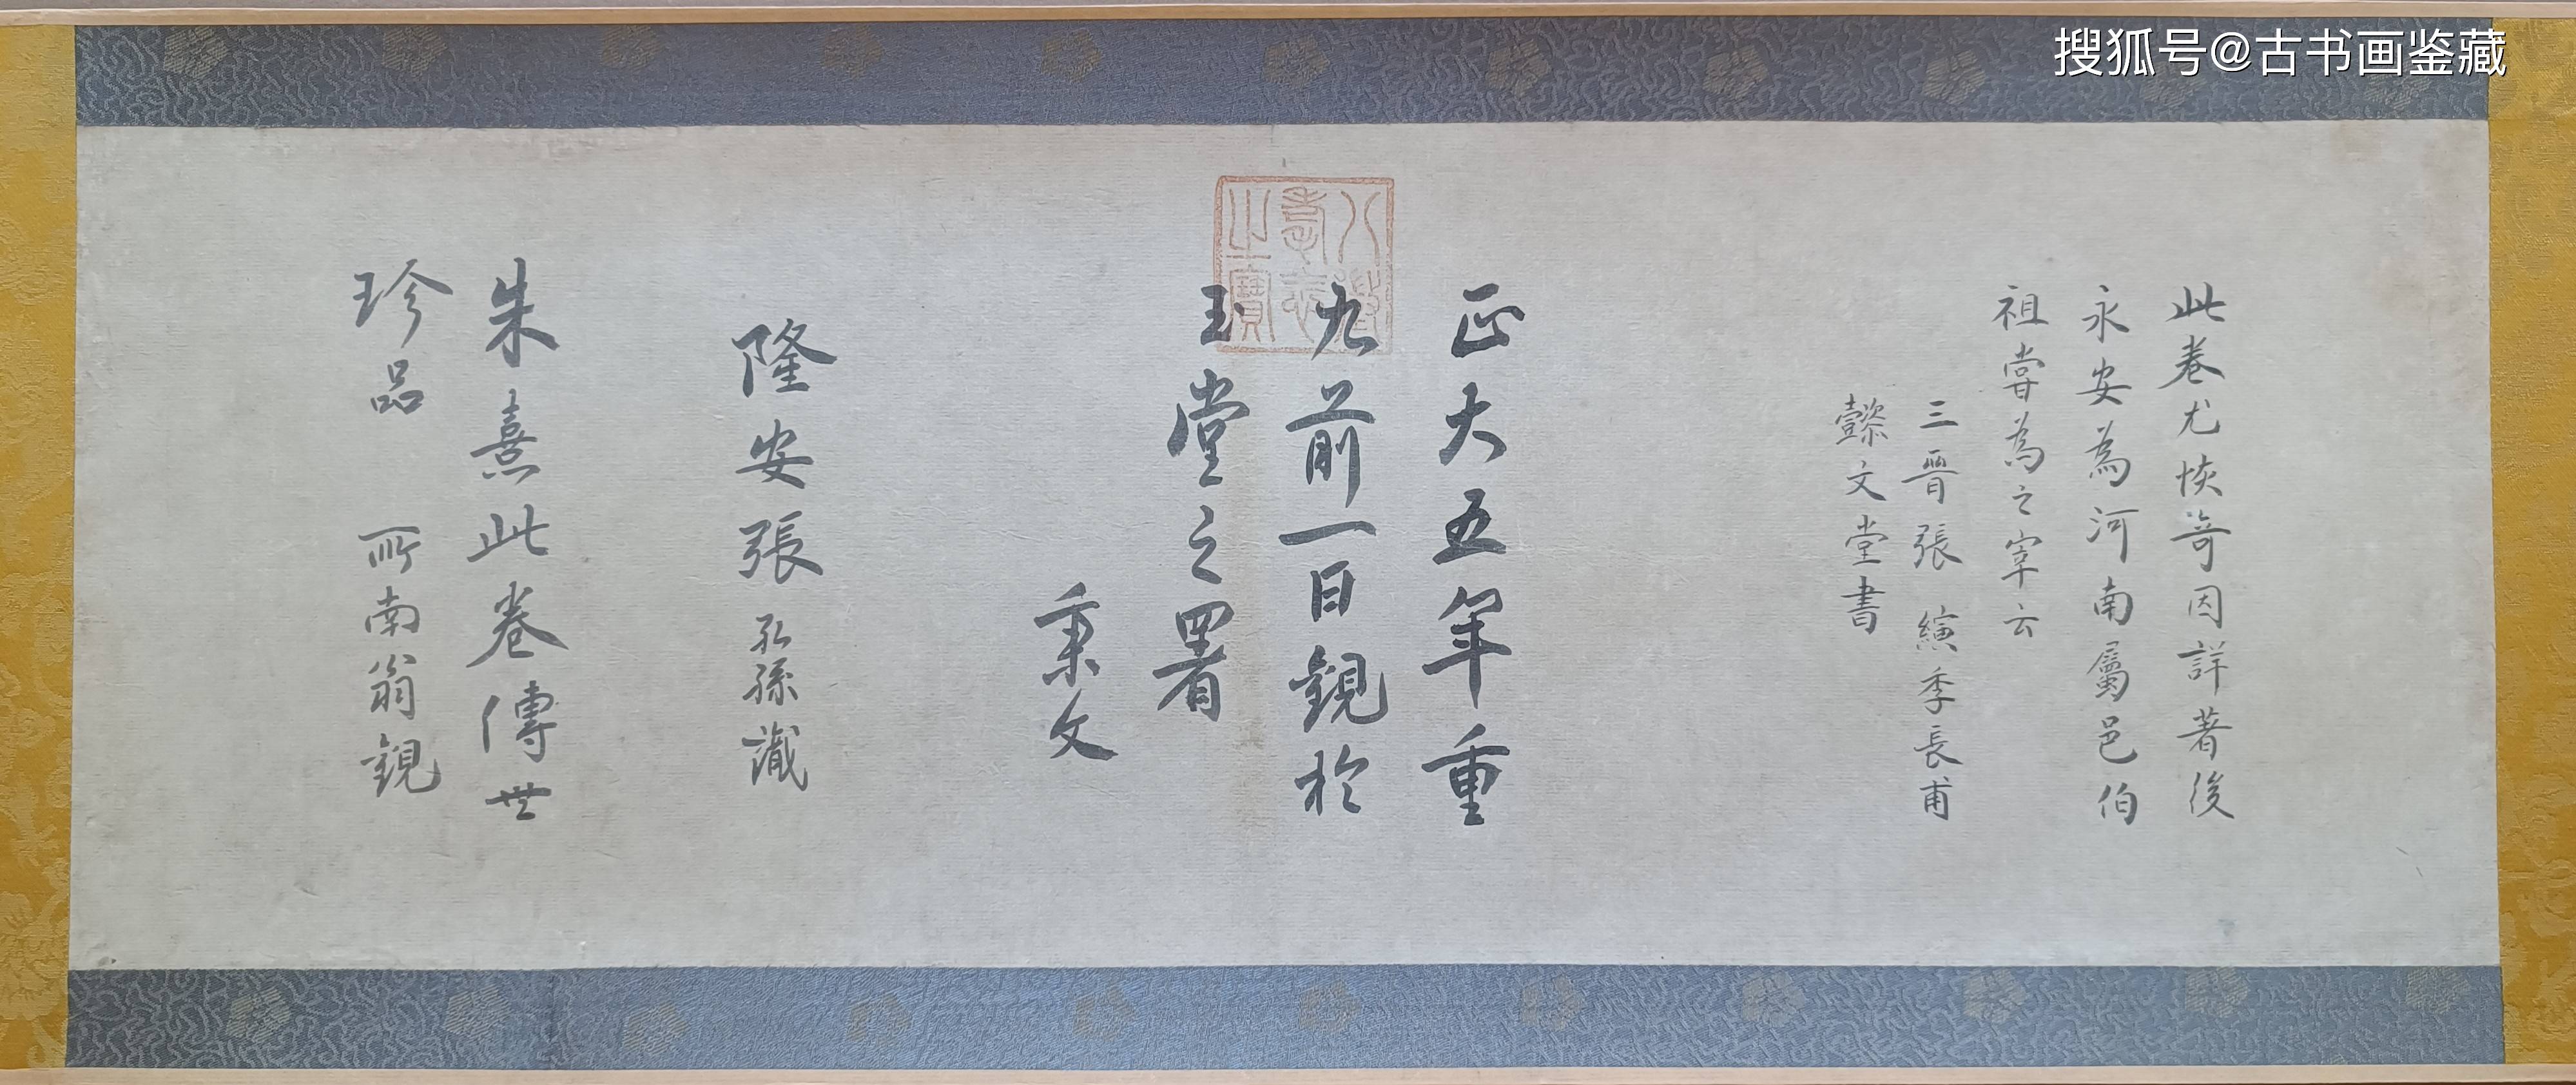 搜狐号@古书画鉴藏
此卷尤恢奇因詳著後
永安為河南屬邑伯
祖嘗為之宰云
三晉張 縯季長甫
懿文堂書
八徵耄念之寶
正大五年重
九前一日觀於
玉堂之署
秉文
隆安張 弘孫識
朱熹此卷傳世
珍品 所南翁觀